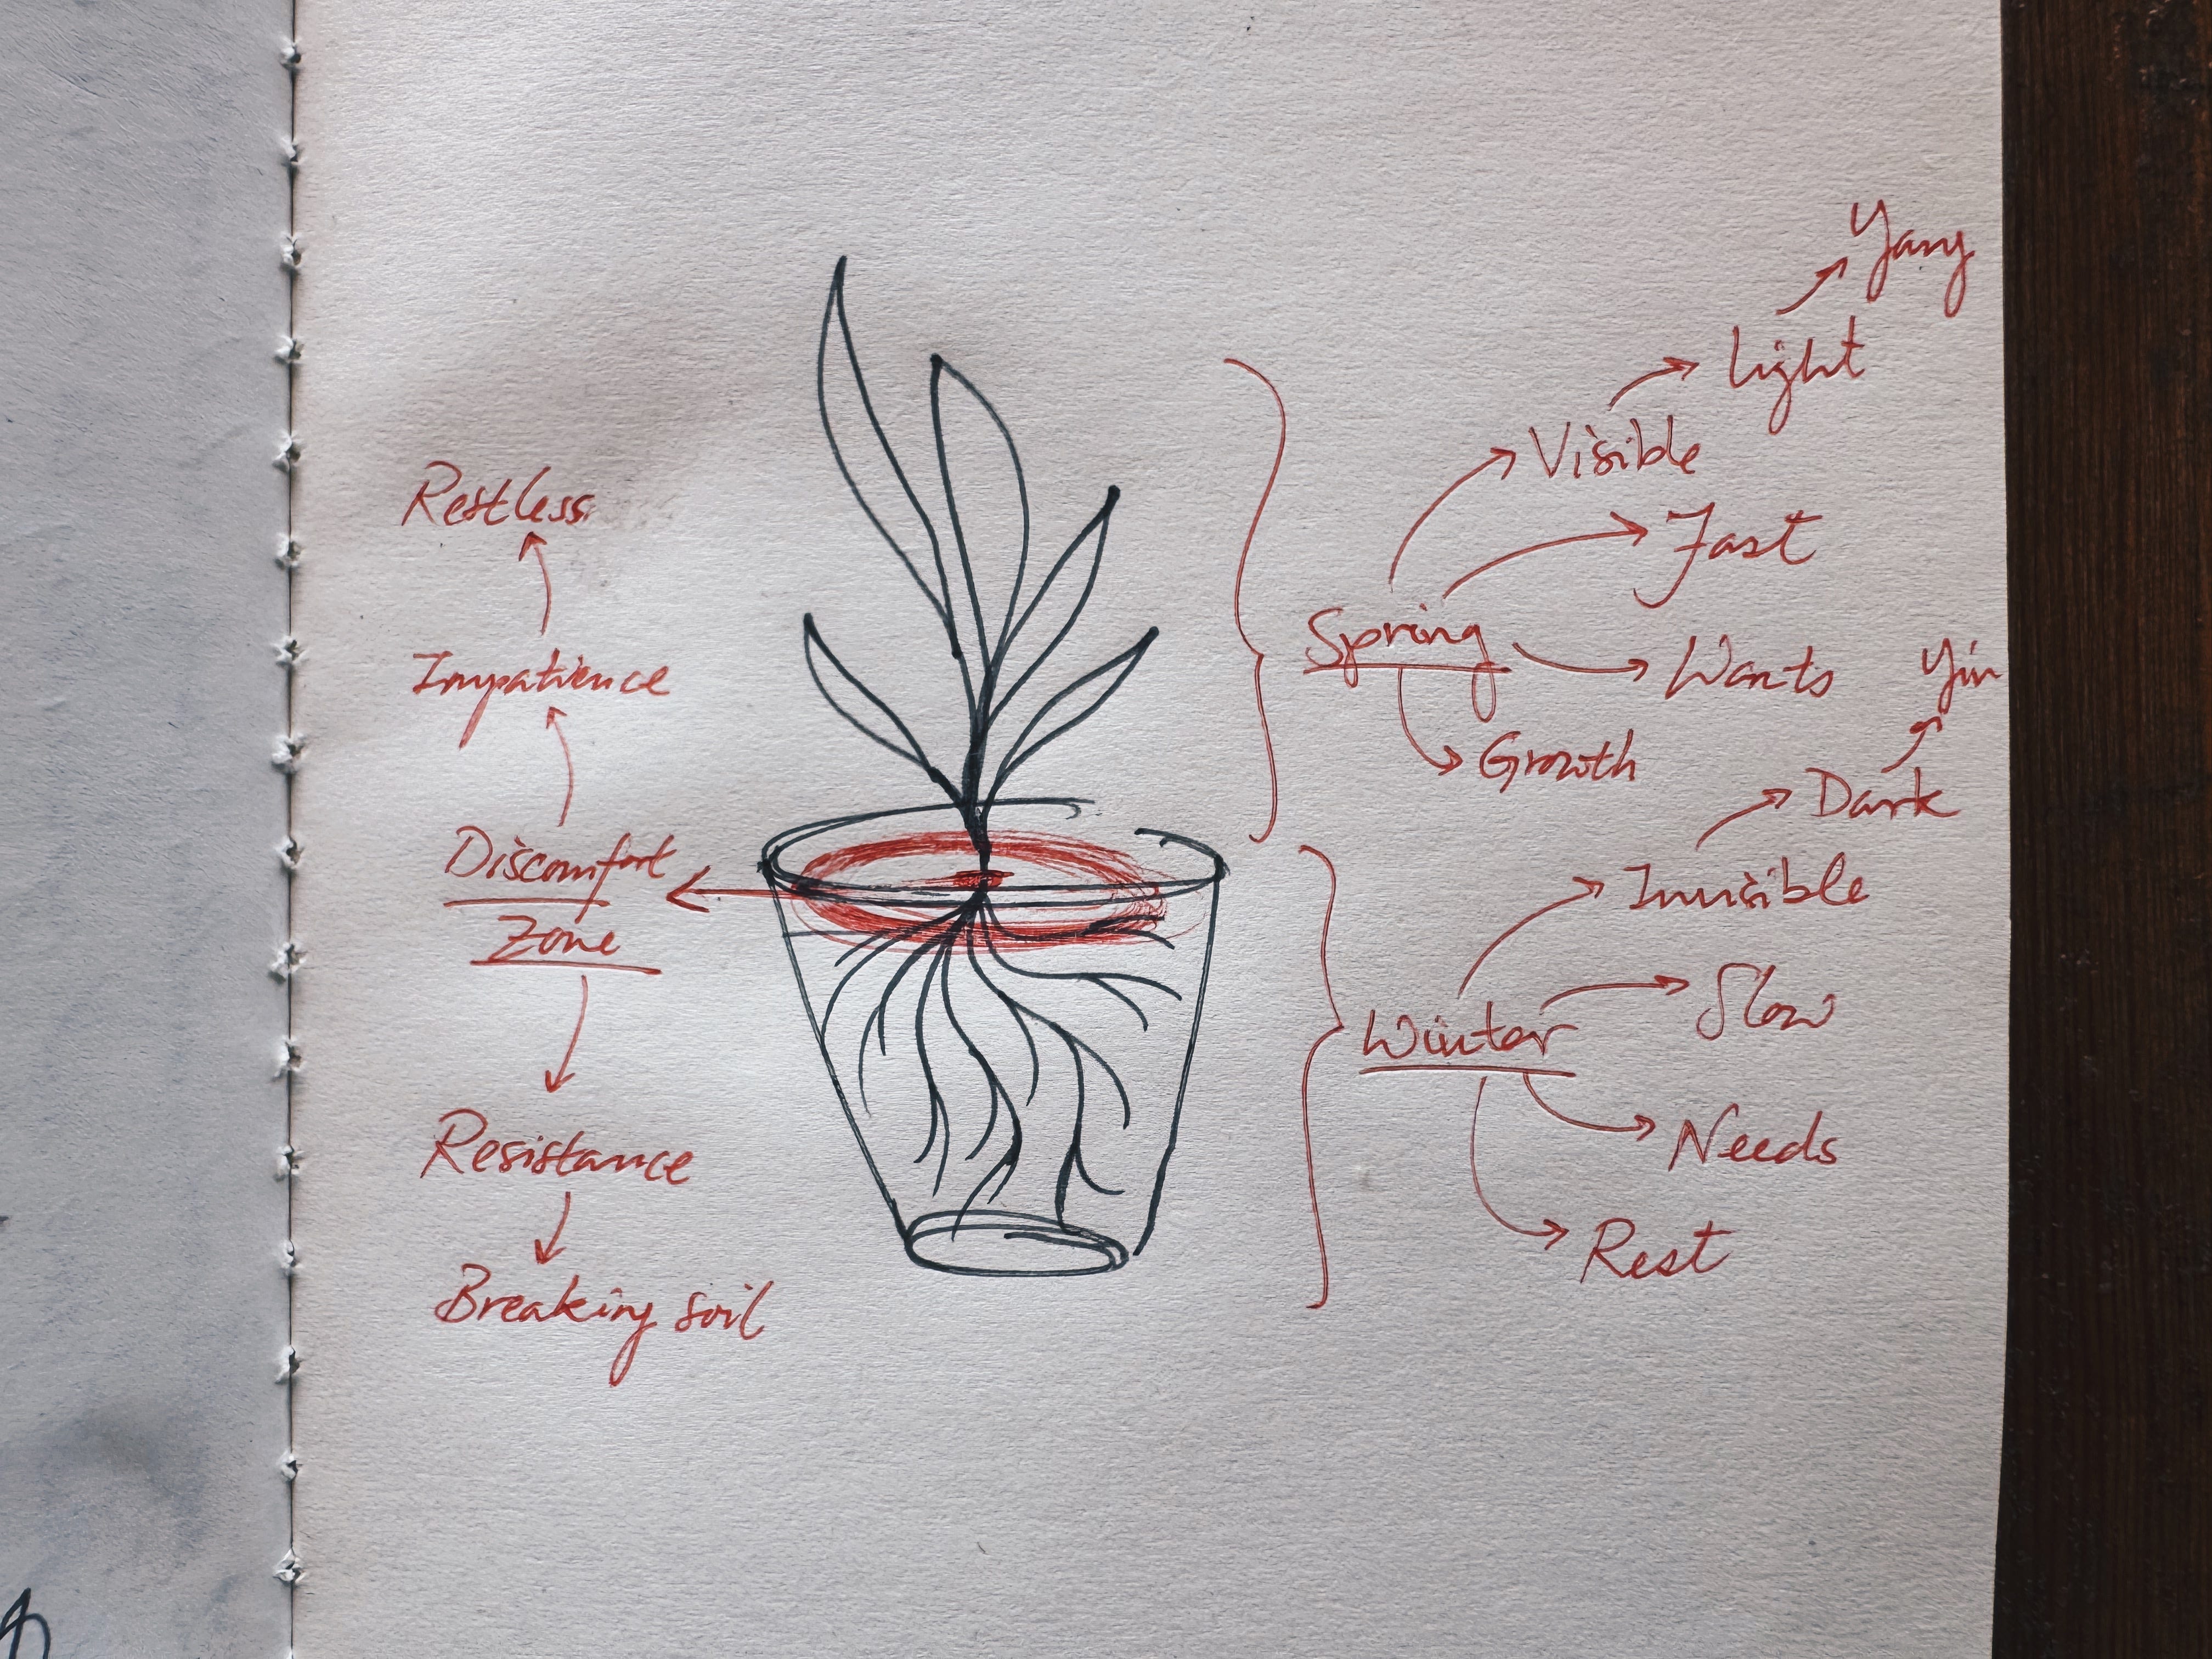 Restless
Impatience
Discomfort
Zone
Resistance
Breaking soil
Yang
Light
Visible
Fast
Spring
Wants
Growth
Yin
Dark
Invisible
Slow
Winter
Needs
Rest